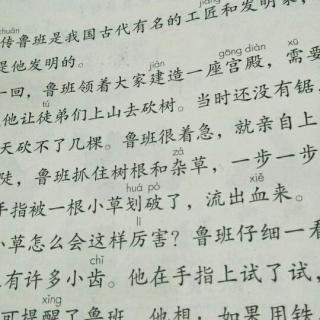 chuán jiàng
传鲁班是我国古代有名的工匠和发明家，
是他发明的。
jiàn gōng diàn xū
一回，鲁班领着大家建造一座宫殿，需要
tú
他让徒弟们上山去砍树。当时还没有锯，
天砍不了几棵。鲁班很着急，就亲自上
zá
陡，鲁班抓住树根和杂草，一步一步
huá pò xiě
手指被一根小草划破了，流出血来。
lì
小草怎么会这样厉害？鲁班仔细一看
chǐ
有许多小齿。他在手指上试了试，
xǐng
可提醒了鲁班，他想：如果用铁